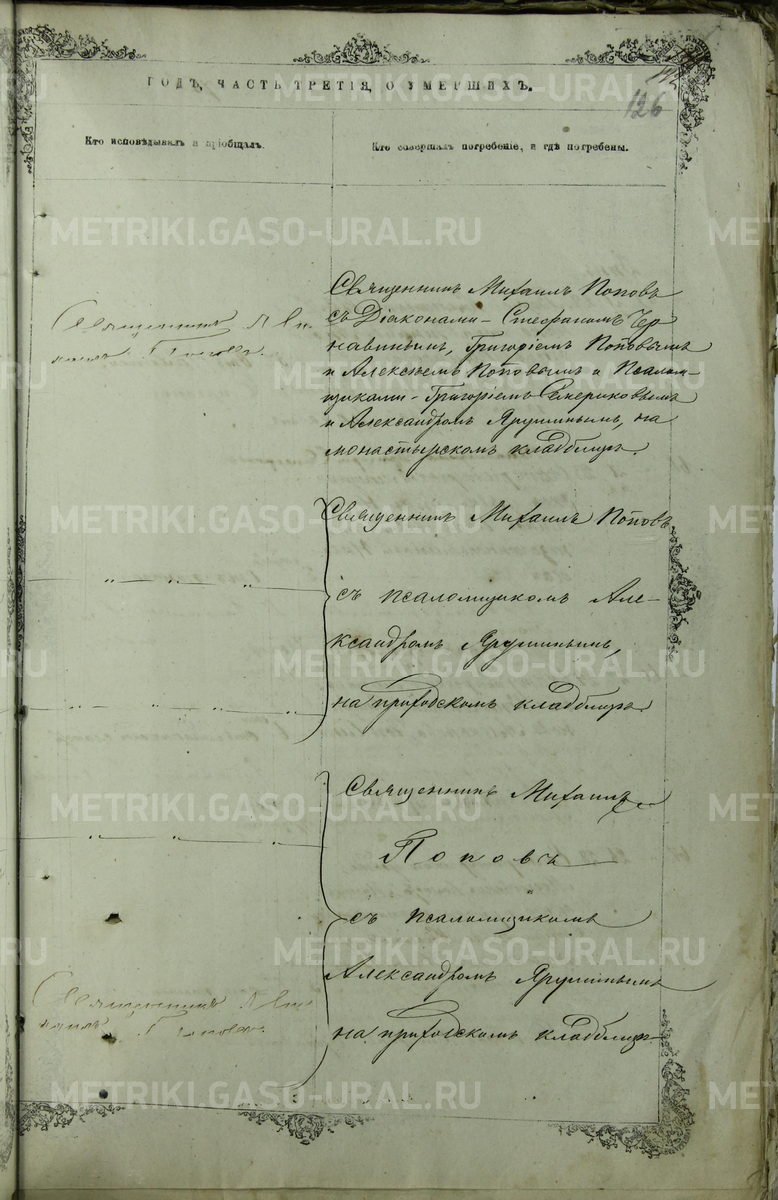 ГОДЪ, ЧАСТЬ ТРЕТІЯ, О УМЕРШИХЪ.
126
Кто исповѣдывалъ и пріобщалъ.
Кто совершалъ погребеніе, и гдѣ погребены.
Священникъ
Попов
Священникъ Михаилъ Поповъ
съ Діаконами - Стефаномъ Чер
навинымъ, Григоріемъ Поповымъ
и Алексѣемъ Поповымъ и Псалом-
щиками - Григоріемъ
и Александромъ Ярушинымъ, на
монастырскомъ кладбищѣ.
Священникъ Михаилъ Поповъ
съ псаломщикомъ Але-
ксандромъ Ярушинымъ,
на приходскомъ кладбищѣ.
Священникъ Михаилъ
Поповъ
съ псаломщикомъ
Александромъ Ярушинымъ
на приходскомъ кладбищѣ
Священникъ
Попов
METRIKI.GASO-URAL.RU